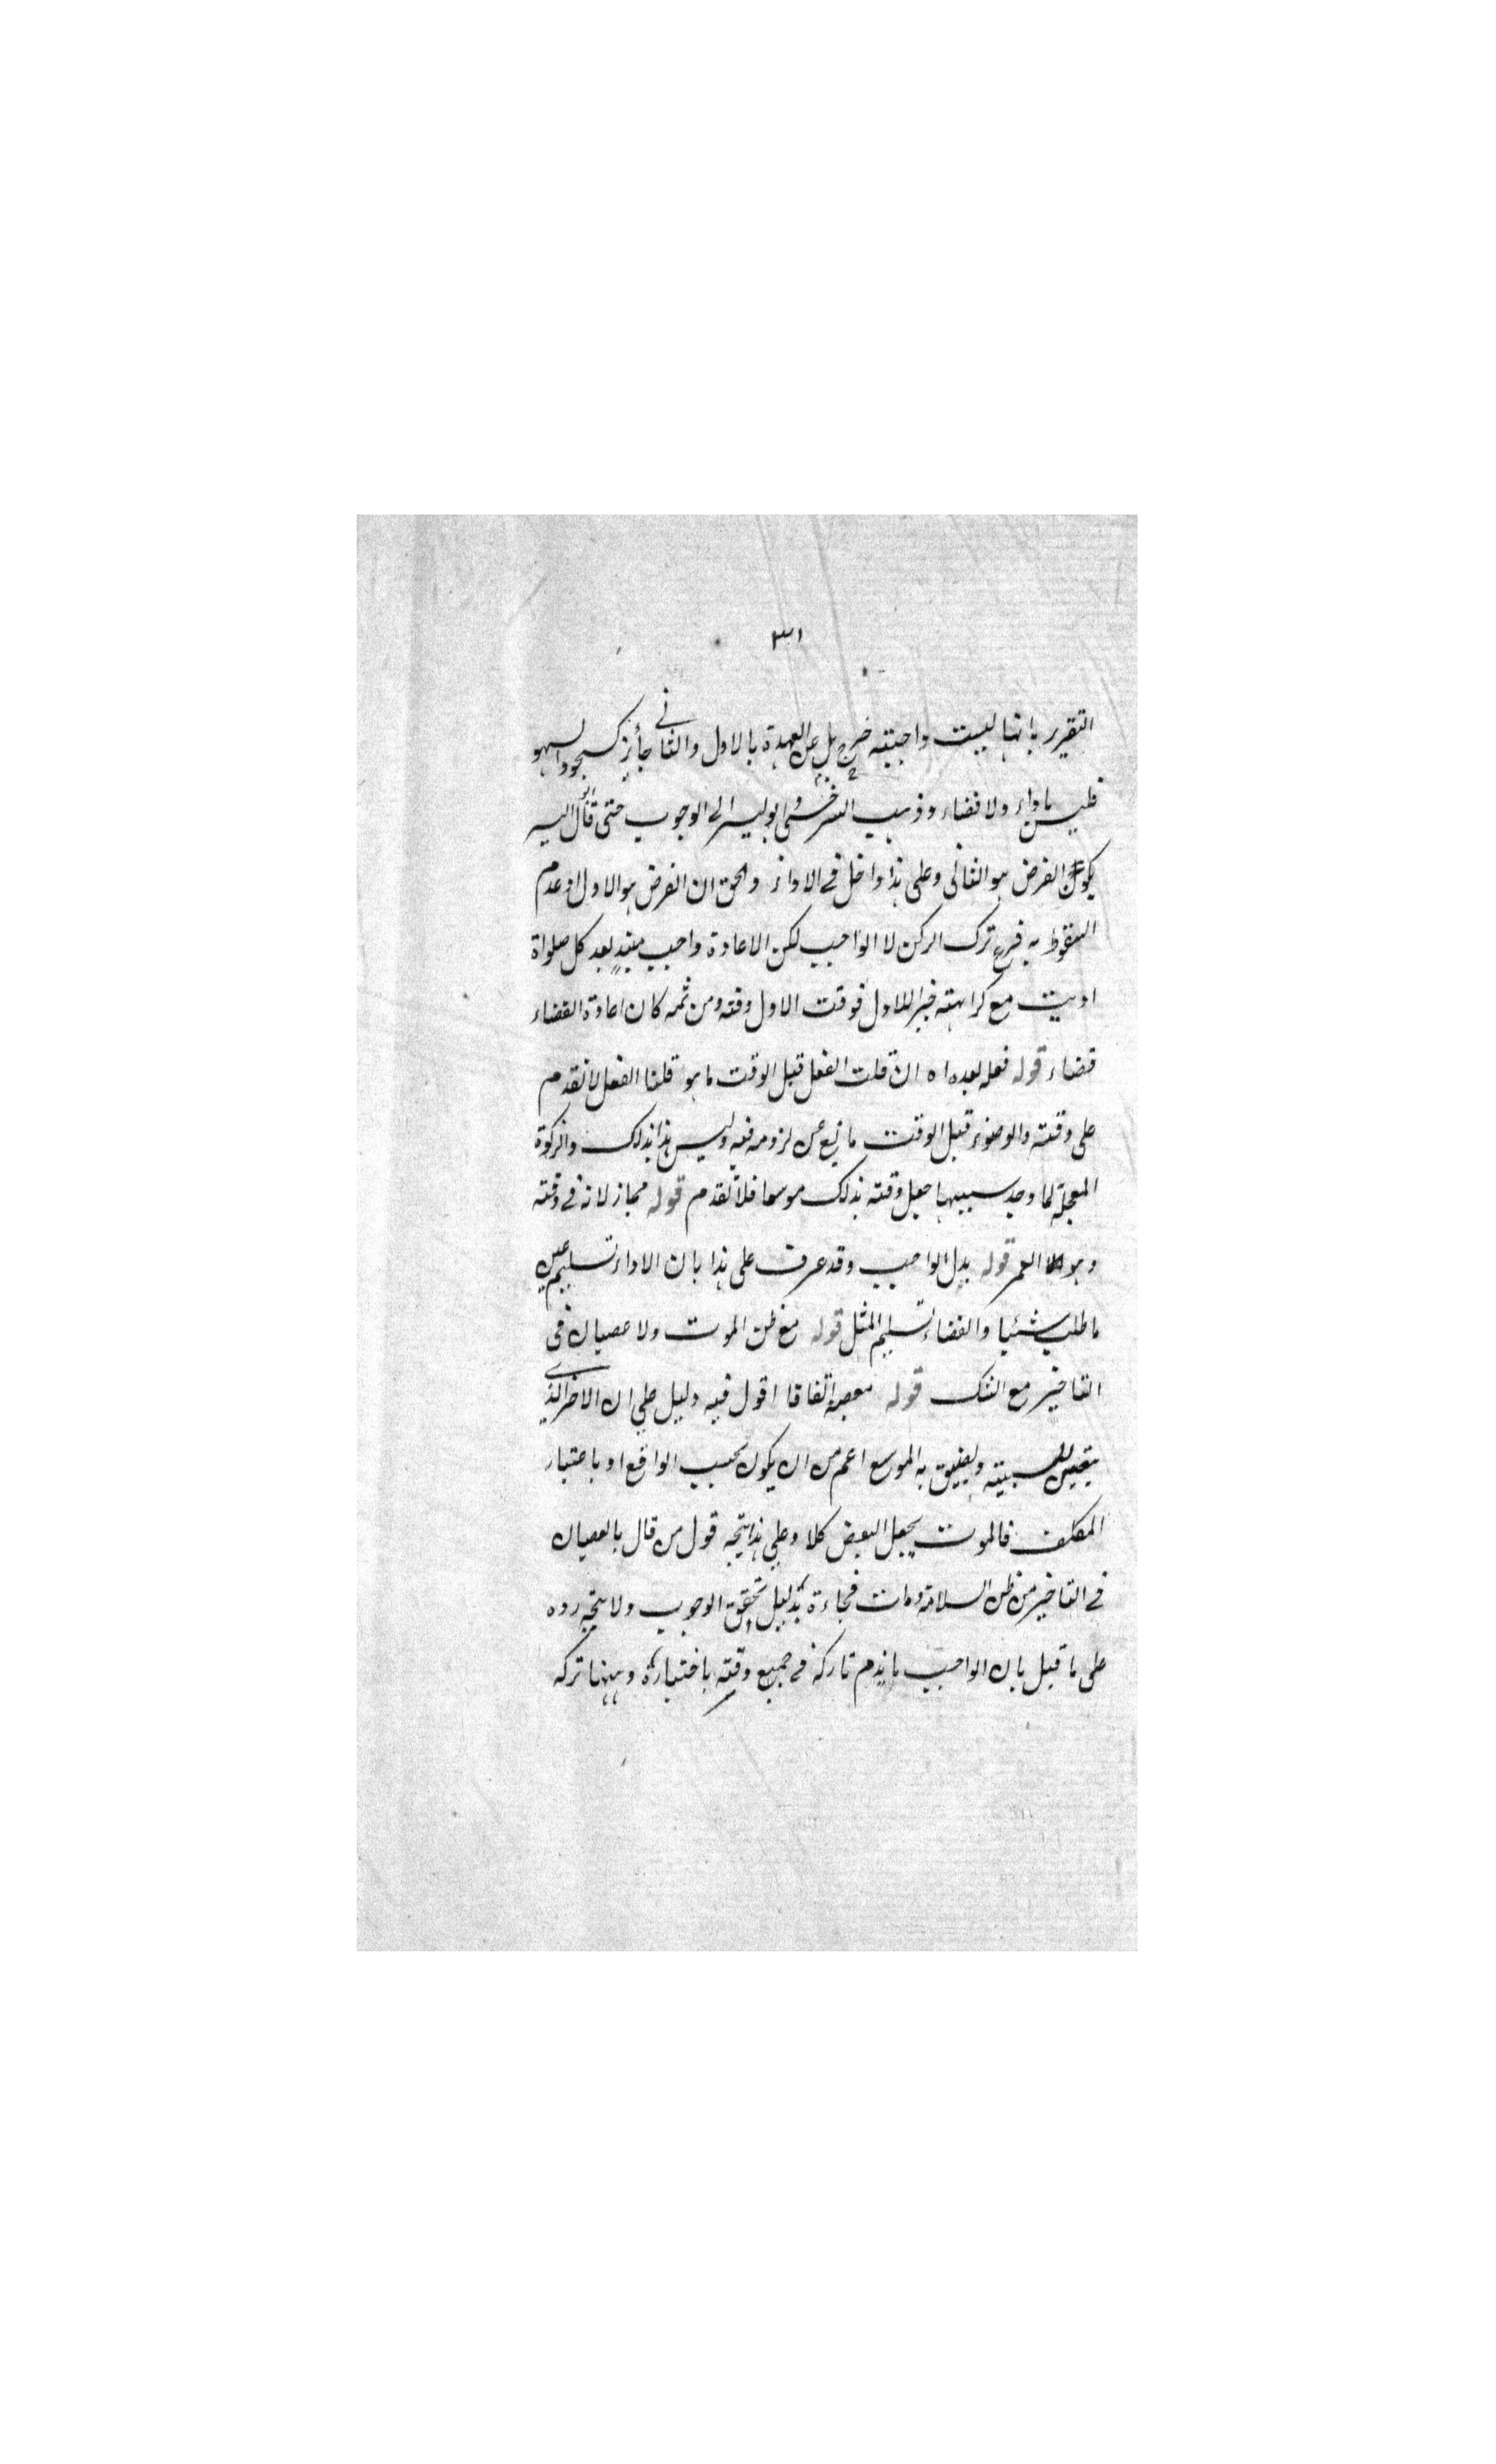 ٣١
التقرير بانها ليست واجبته خرج بل عن العهدة بالاول والثانى جائز كسجود السهو
فليس باداء ولا قضاء وذهب السرخسى وابو اليسر الى الوجوب حتى قال ابو اليسر
يكون الفرض هو الثانى وعلى هذا داخل فى الاداء والحق ان الفرض هو الاول اذ عدم
السقوط به فرع ترك الركن لا الواجب لكن الاعادة واجب بعد كل صلواة
اديت مع كراهته جبرا للاول فوقت الاول وقته ومن ثمه كان اعادة القضاء
قضاء قوله فعله بعده اه ان قلت الفعل قبل الوقت ما هو قلنا الفعل لا تقدم
على وقته والوضوء قبل الوقت مانع عن لزومه فيه وليس هذا بذلك والزكوة
المعجلة لما وجد سببها جعل وقته بذلك موسعا فلا تقدم قوله مجاز لانه فى وقته
وهو العمر قوله بدل الواجب وقد عرف على هذا بان الاداء تسليم عين
ما طلب شيئا والقضاء تسليم المثل قوله مع ظن الموت ولا عصيان فى
التاخير مع الشك قوله يعصى اتفاقا اقول فيه دليل على ان الاخر الذى
يتعين للسببية ويضيق به الموسع اعم من ان يكون بحسب الواقع او باعتبار
المكلف فالموت يجعل البعض كلا وعلى هذا يتجه قول من قال بالعصيان
فى التاخير من ظن السلامة ومات فجاءة بدليل تحقق الوجوب ولا يتجه رده
على ما قيل بان الواجب ما يذم تاركه فى جميع وقته باختياره وههنا تركه